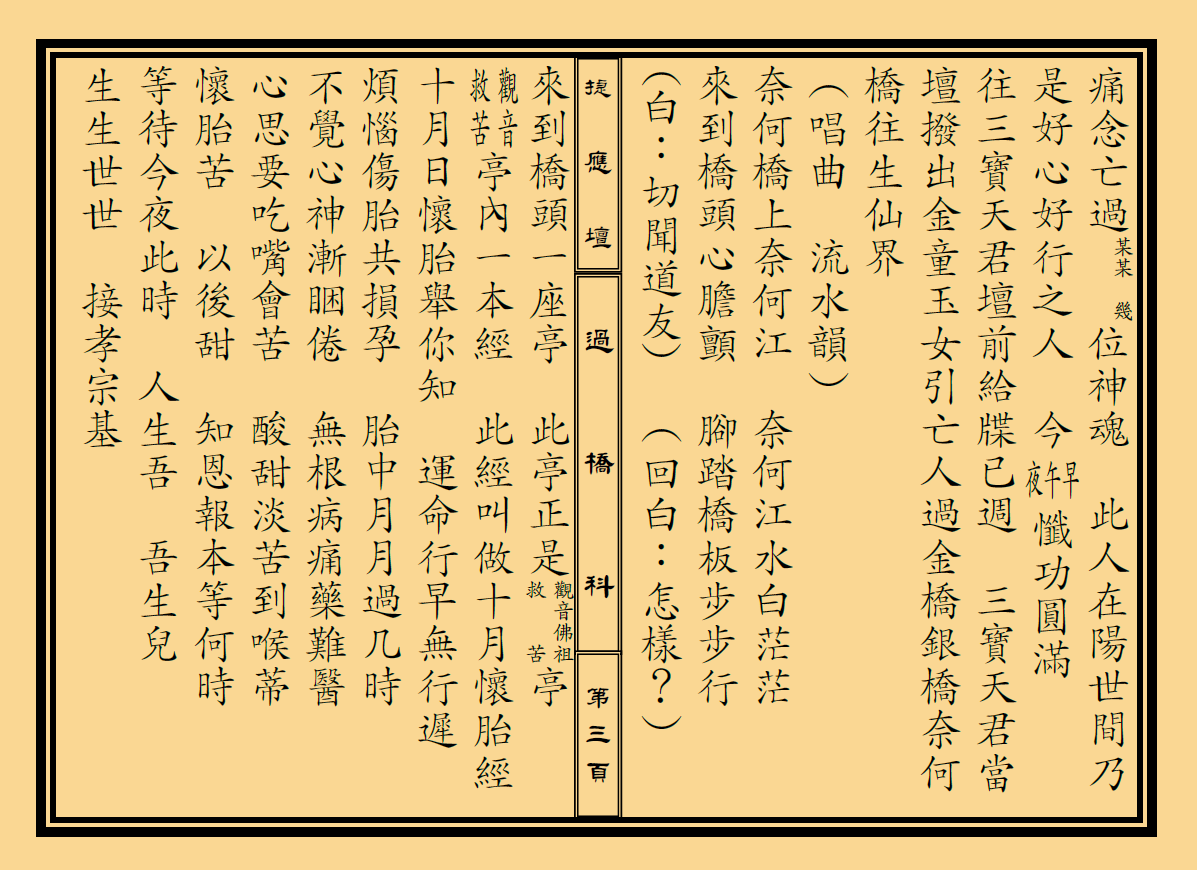 痛念亡過某某　幾位神魂　此人在陽世間乃
是好心好行之人　今早午夜懺功圓滿
往三寶天君壇前給牒已週　三寶天君當
壇撥出金童玉女引亡人過金橋銀橋奈何
橋往生仙界
（唱曲　流水韻）
奈何橋上奈何江　奈何江水白茫茫
來到橋頭心膽顫　腳踏橋板步步行
（白：切聞道友）　（回白：怎樣？）
捷應壇　過橋科　第三頁
來到橋頭一座亭　此亭正是觀音佛祖救苦亭
觀音救苦亭內一本經　此經叫做十月懷胎經
十月日懷胎舉你知　運命行早無行遲
煩惱傷胎共損孕　胎中月月過几時
不覺心神漸睏倦　無根病痛藥難醫
心思要吃嘴會苦　酸甜淡苦到喉蒂
懷胎苦　以後甜　知恩報本等何時
等待今夜此時　人生吾　吾生兒
生生世世　接孝宗基